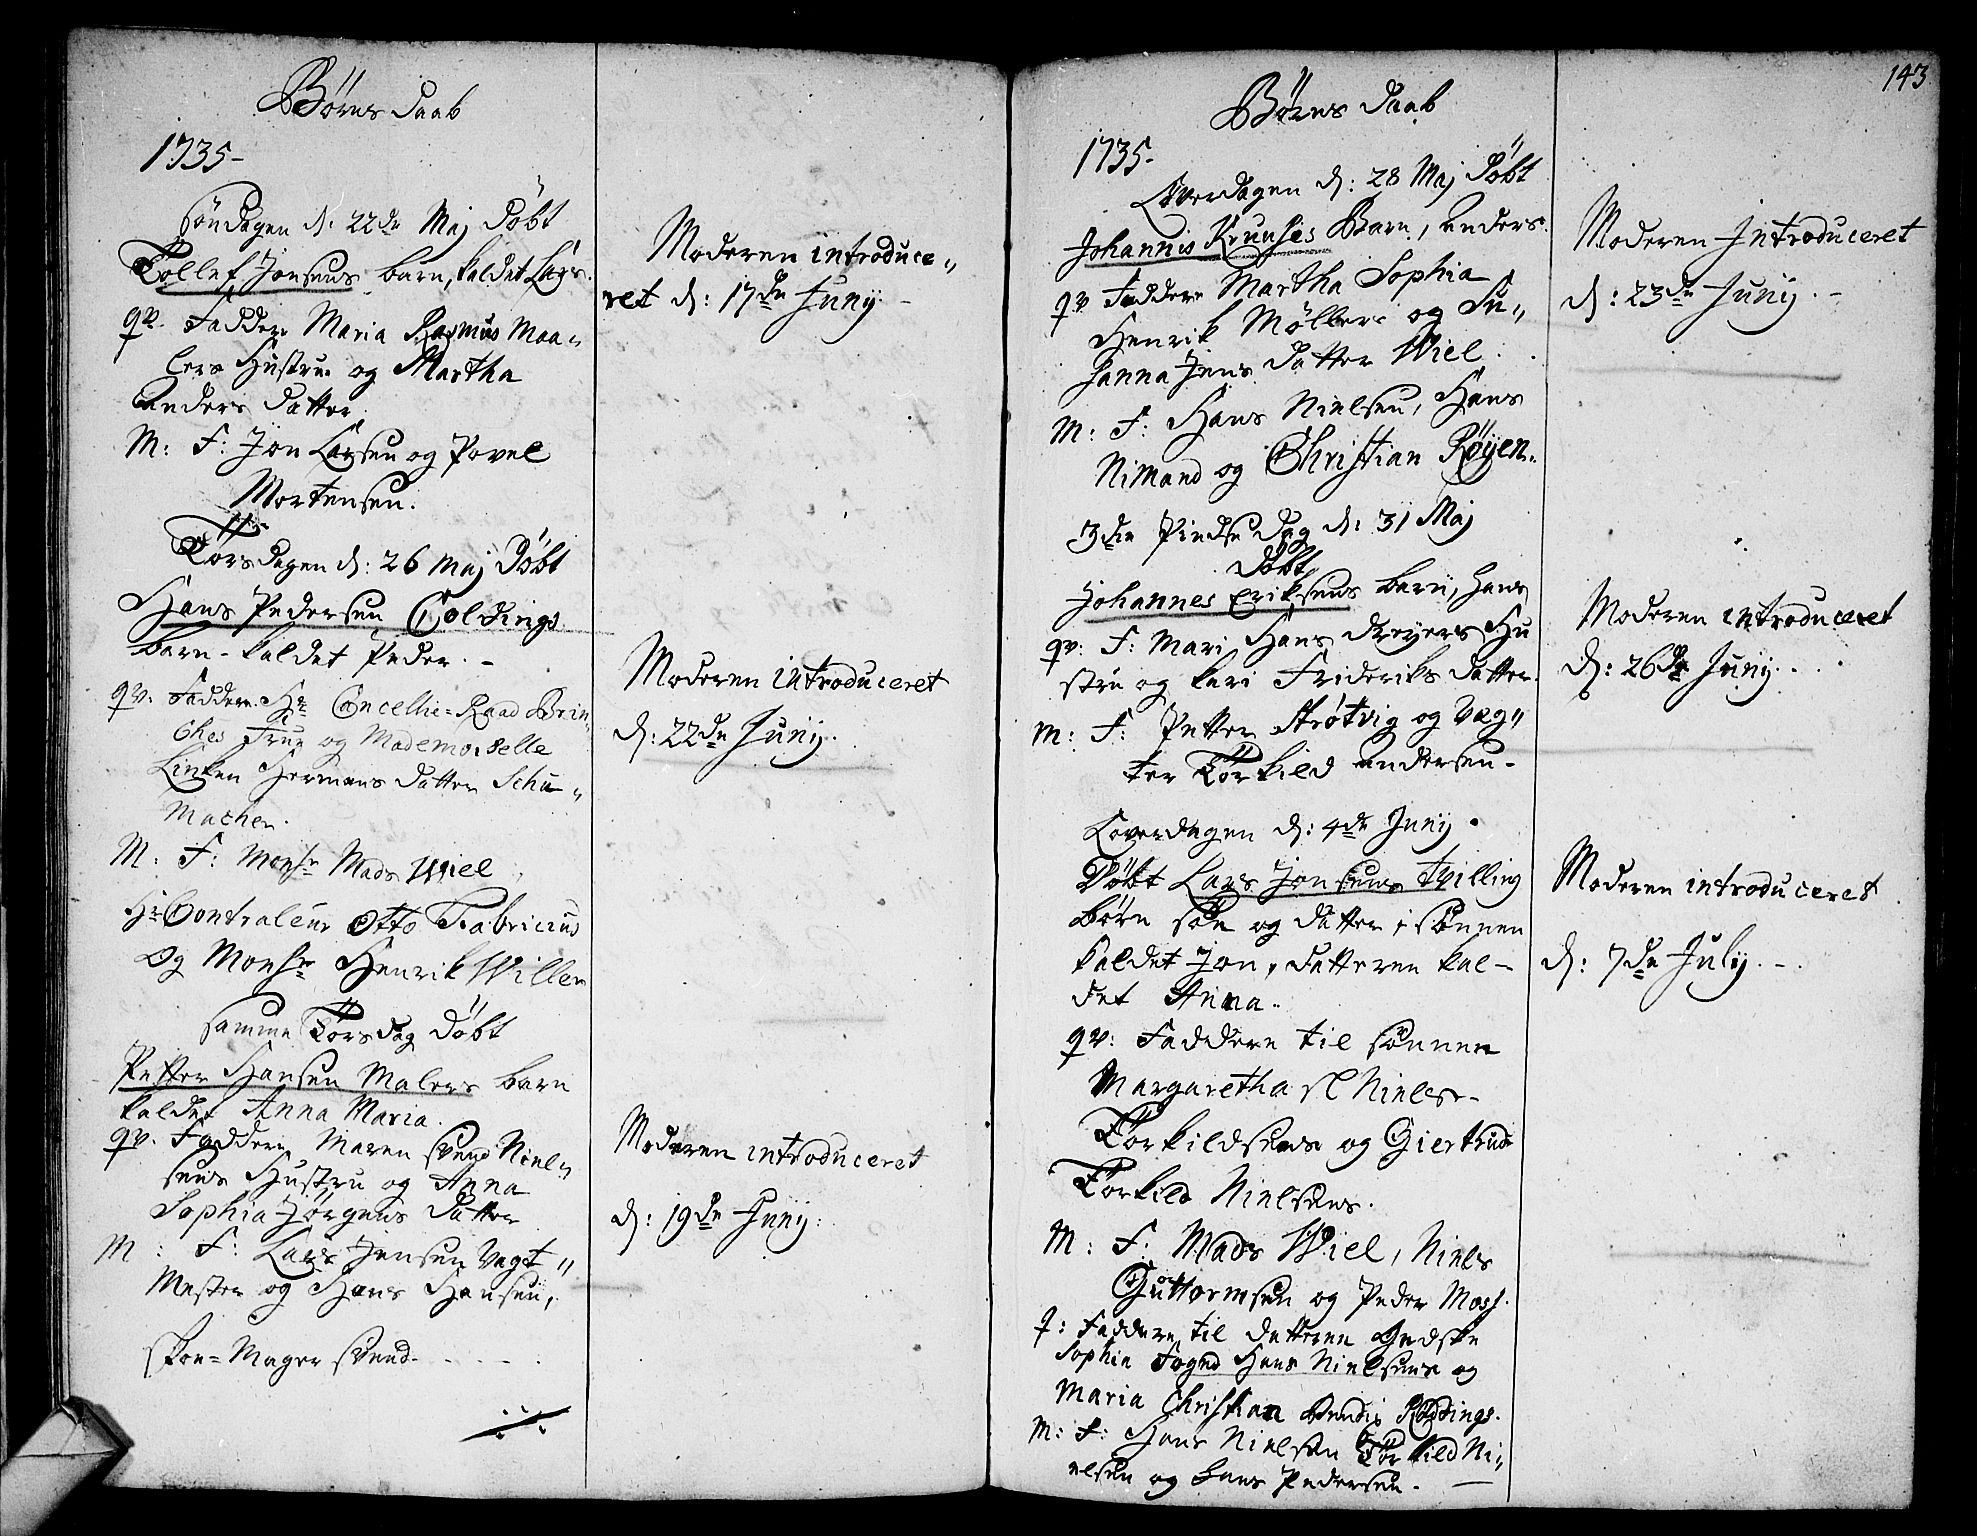 Børns Daab
1735-
Søndagen d: 22de Maj Døbt
Tollef Jonsens barn, kaldet Lars.
qv. Faddere Maria Rasmus Maa„
lers Hustrue og Martha
Anders Datter.
M: F: Jon Larsen og Povel
Mortensen.
Torsdagen d: 26 Maj Døbt
Hans Pedersen Coldings
barn - kaldet Peder. -
qv. Faddere Hr Cancellie=Raad Brin„
ches Frue og Mademoiselle
Linken Hermans Datter Schu„
Macher.
M: F: Monsr Mads Wiel
Hr Contraleur Otto Fabricius
Og Monsr Henrik Willer
samme Torsdag Døbt
Petter Hansen Malers barn
kaldet Anna Maria.
qv. Faddere Maren Svend Niel„
sens Hustru og Anna
Sophia Jørgens Datter
M: F: Lars Jensen Vagt„
Mester og Hans Hansen,
Skoe=Mager Svend. - - - -
Moderen introduce„
ret d: 17de Junij. -
Moderen introduceret
d: 22de Junij.
Moderen introduceret
d: 19de Junij:
143
Børns Daab
1735.
Løverdagen d: 28 Maj Døbt
Johannis Kruuses Barn, Anders.
qv Faddere Martha Sophia
Henrik Møllers og Su„
sanna Jens Datter Wiel.
M: F: Hans Nielsen, Hans
Nimand og Christian Røyen.
3die Pindse Dag d: 31 Maj
Døbt
Johannes Eriksens barn, Hans
qv: F: Mari Hans Dreyers Hu
stru og Kari Frideriks Datter.
M: F: Petter Strøtvig og Væg„
ter Torkild Andersen -
Løverdagen d: 4de Junij.
Døbt Lars Jonsens Tvilling
Børn Søn og Datter, Sønnen
kaldet Jon, Datteren kal-
det Anna.
qv: Faddere til Sønnen
Margaretha Sl Niels-
Torkildsens og Giertrud
Torkild Nielsens.
M: F: Mads Wiel, Niels
Guttormsen og Peder Moss.
q: Faddere til Datteren Giedske
Sophia Foged Hans Nielsens og
Maria Christian Bendix Røddings.
M: F: Hans Nielsen Torkild Ni„
elsen og Hans Pedersen. -
Moderen Introduceret
d: 23de Junij. -
Moderen introduceret
d: 26de Junij. . .
Moderen introduceret
d: 7de Julij. - .